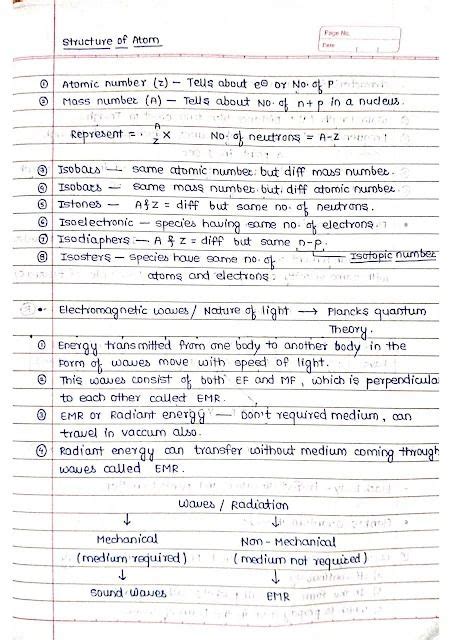 Page No.
Date
Structure of Atom
① Atomic number (z) – Tells about e⊖ or No. of P
② Mass number (A) – Tells about No. of n+p in a nucleus.
Represent = A Z X No. of neutrons = A-Z
③ Isobars – same atomic number but diff mass number.
④ Isobars – same mass number but diff atomic number.
⑤ Istones – A & Z = diff but same no. of neutrons.
⑥ Isoelectronic – species having same no. of electrons.
⑦ Isodiaphers – A & Z = diff but same n-p.
⑧ Isosters – species have same no. of Isotopic number
atoms and electrons.
• Electromagnetic waves / Nature of light → Plancks quantum
Theory.
① Energy transmitted from one body to another body in the
form of waves move with speed of light.
② This waves consist of both EF and MF, which is perpendicula
to each other called EMR.
③ EMR or Radiant energy – Don't required medium, can
travel in vaccum also.
④ Radiant energy can transfer without medium coming through
waves called EMR.
Waves / Radiation
↓ ↓
Mechanical Non-Mechanical
(medium required) (medium not required)
↓ ↓
Sound Waves EMR